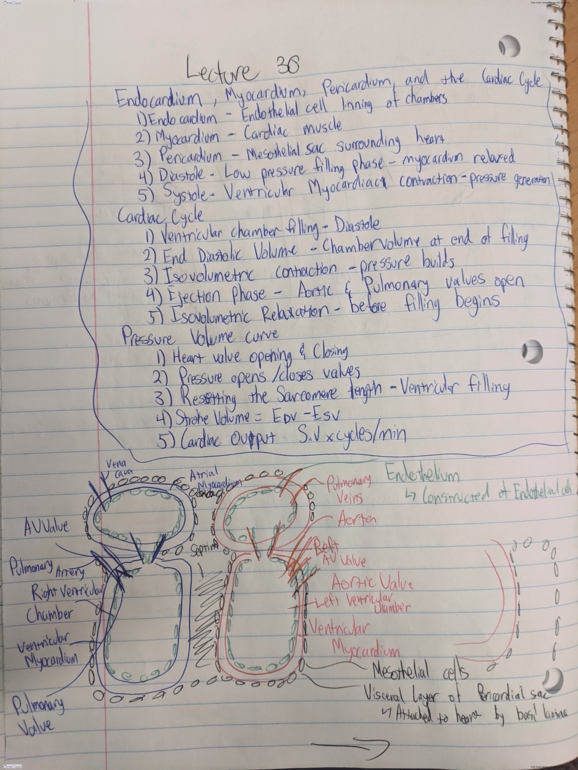 Lecture 36
Endocardium, Myocardium, Pericardium, and the Cardiac Cycle
1) Endocardium - Endothelial cell lining of chambers
2) Myocardium - Cardiac muscle
3) Pericardium - Mesothelial sac surrounding heart
4) Diastole - Low pressure filling phase - myocardium relaxed
5) Systole - Ventricular Myocardiac contraction - pressure generation
Cardiac Cycle
1) Ventricular chamber filling - Diastole
2) End Diastolic Volume - Chamber volume at end of filling
3) Isovolumetric contraction - pressure builds
4) Ejection Phase - Aortic & Pulmonary valves open
5) Isovolumetric Relaxation - before filling begins
Pressure Volume curve
1) Heart valve opening & Closing
2) Pressure opens/closes valves
3) Resetting the Sarcomere length - Ventricular filling
4) Stroke Volume = EDV - ESV
5) Cardiac Output S.V x cycles/min
Vena Cava
Atrial Myocardium
Pulmonary Veins
Endothelium
↳ Constructed of Endothelial cells
Aorta
AV Valve
Septum
Left AV Valve
Pulmonary Artery
Aortic Valve
Right Ventricular Chamber
Left Ventricular Chamber
Ventricular Myocardium
Ventricular Myocardium
Mesothelial cells
Pulmonary Valve
Visceral Layer of Pericardial sac
↳ Attached to heart by basal lamina